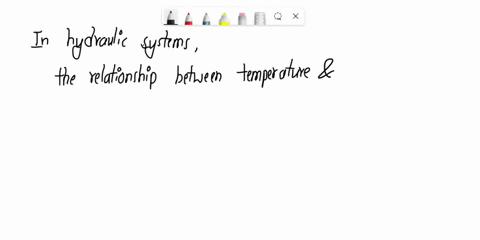 In hydraulic systems,
the relationship between temperature &